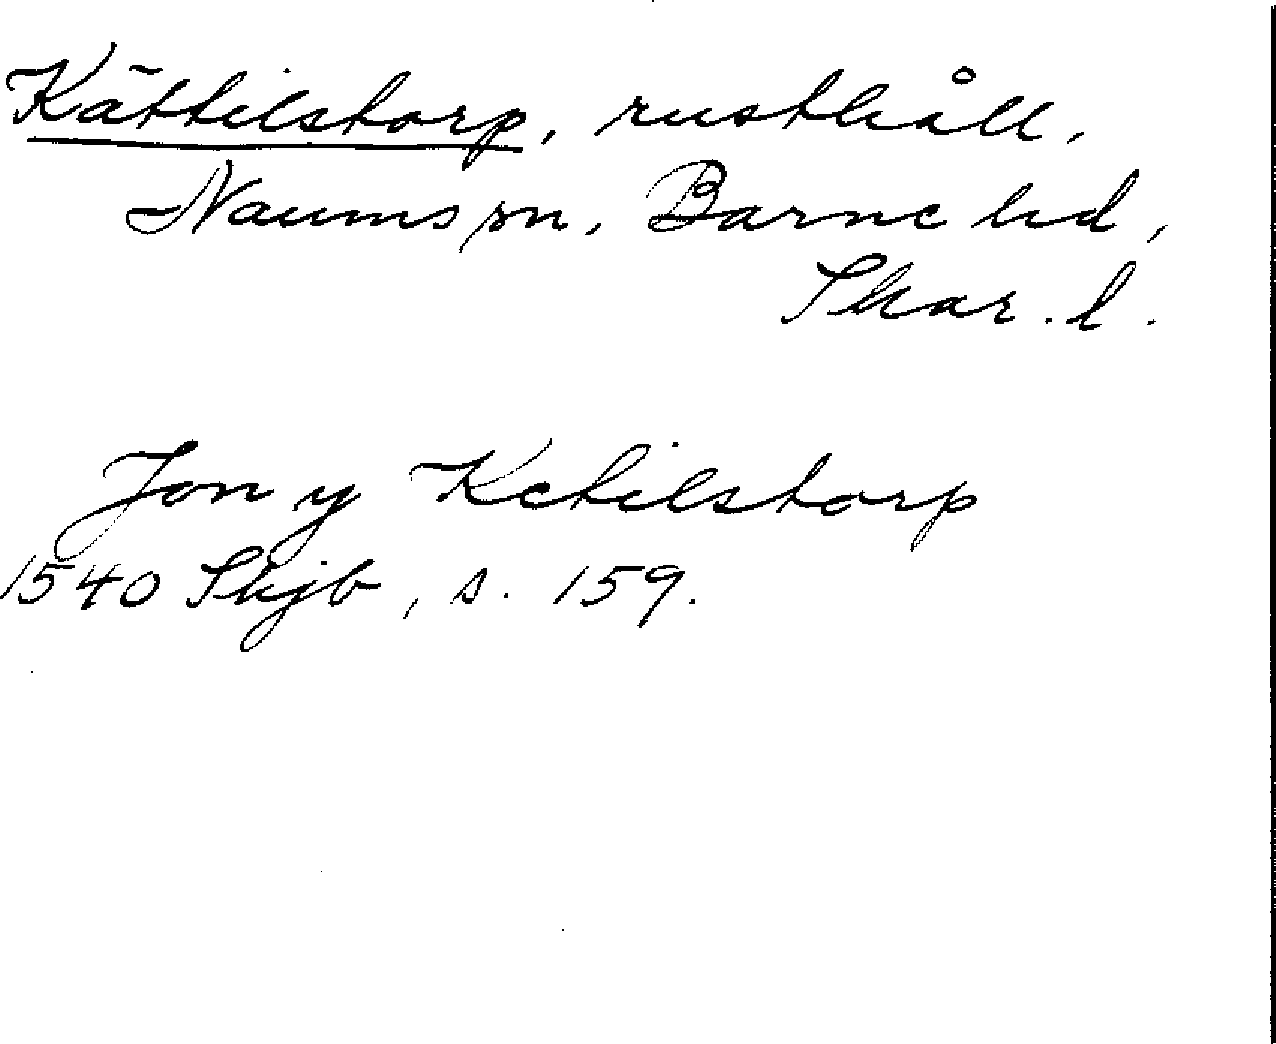 Kättilstorp, rusthåll,
Naums sn, Barne hd,
Skar. l.
Jon y Ketilstorp
1540 Skjb, s. 159.